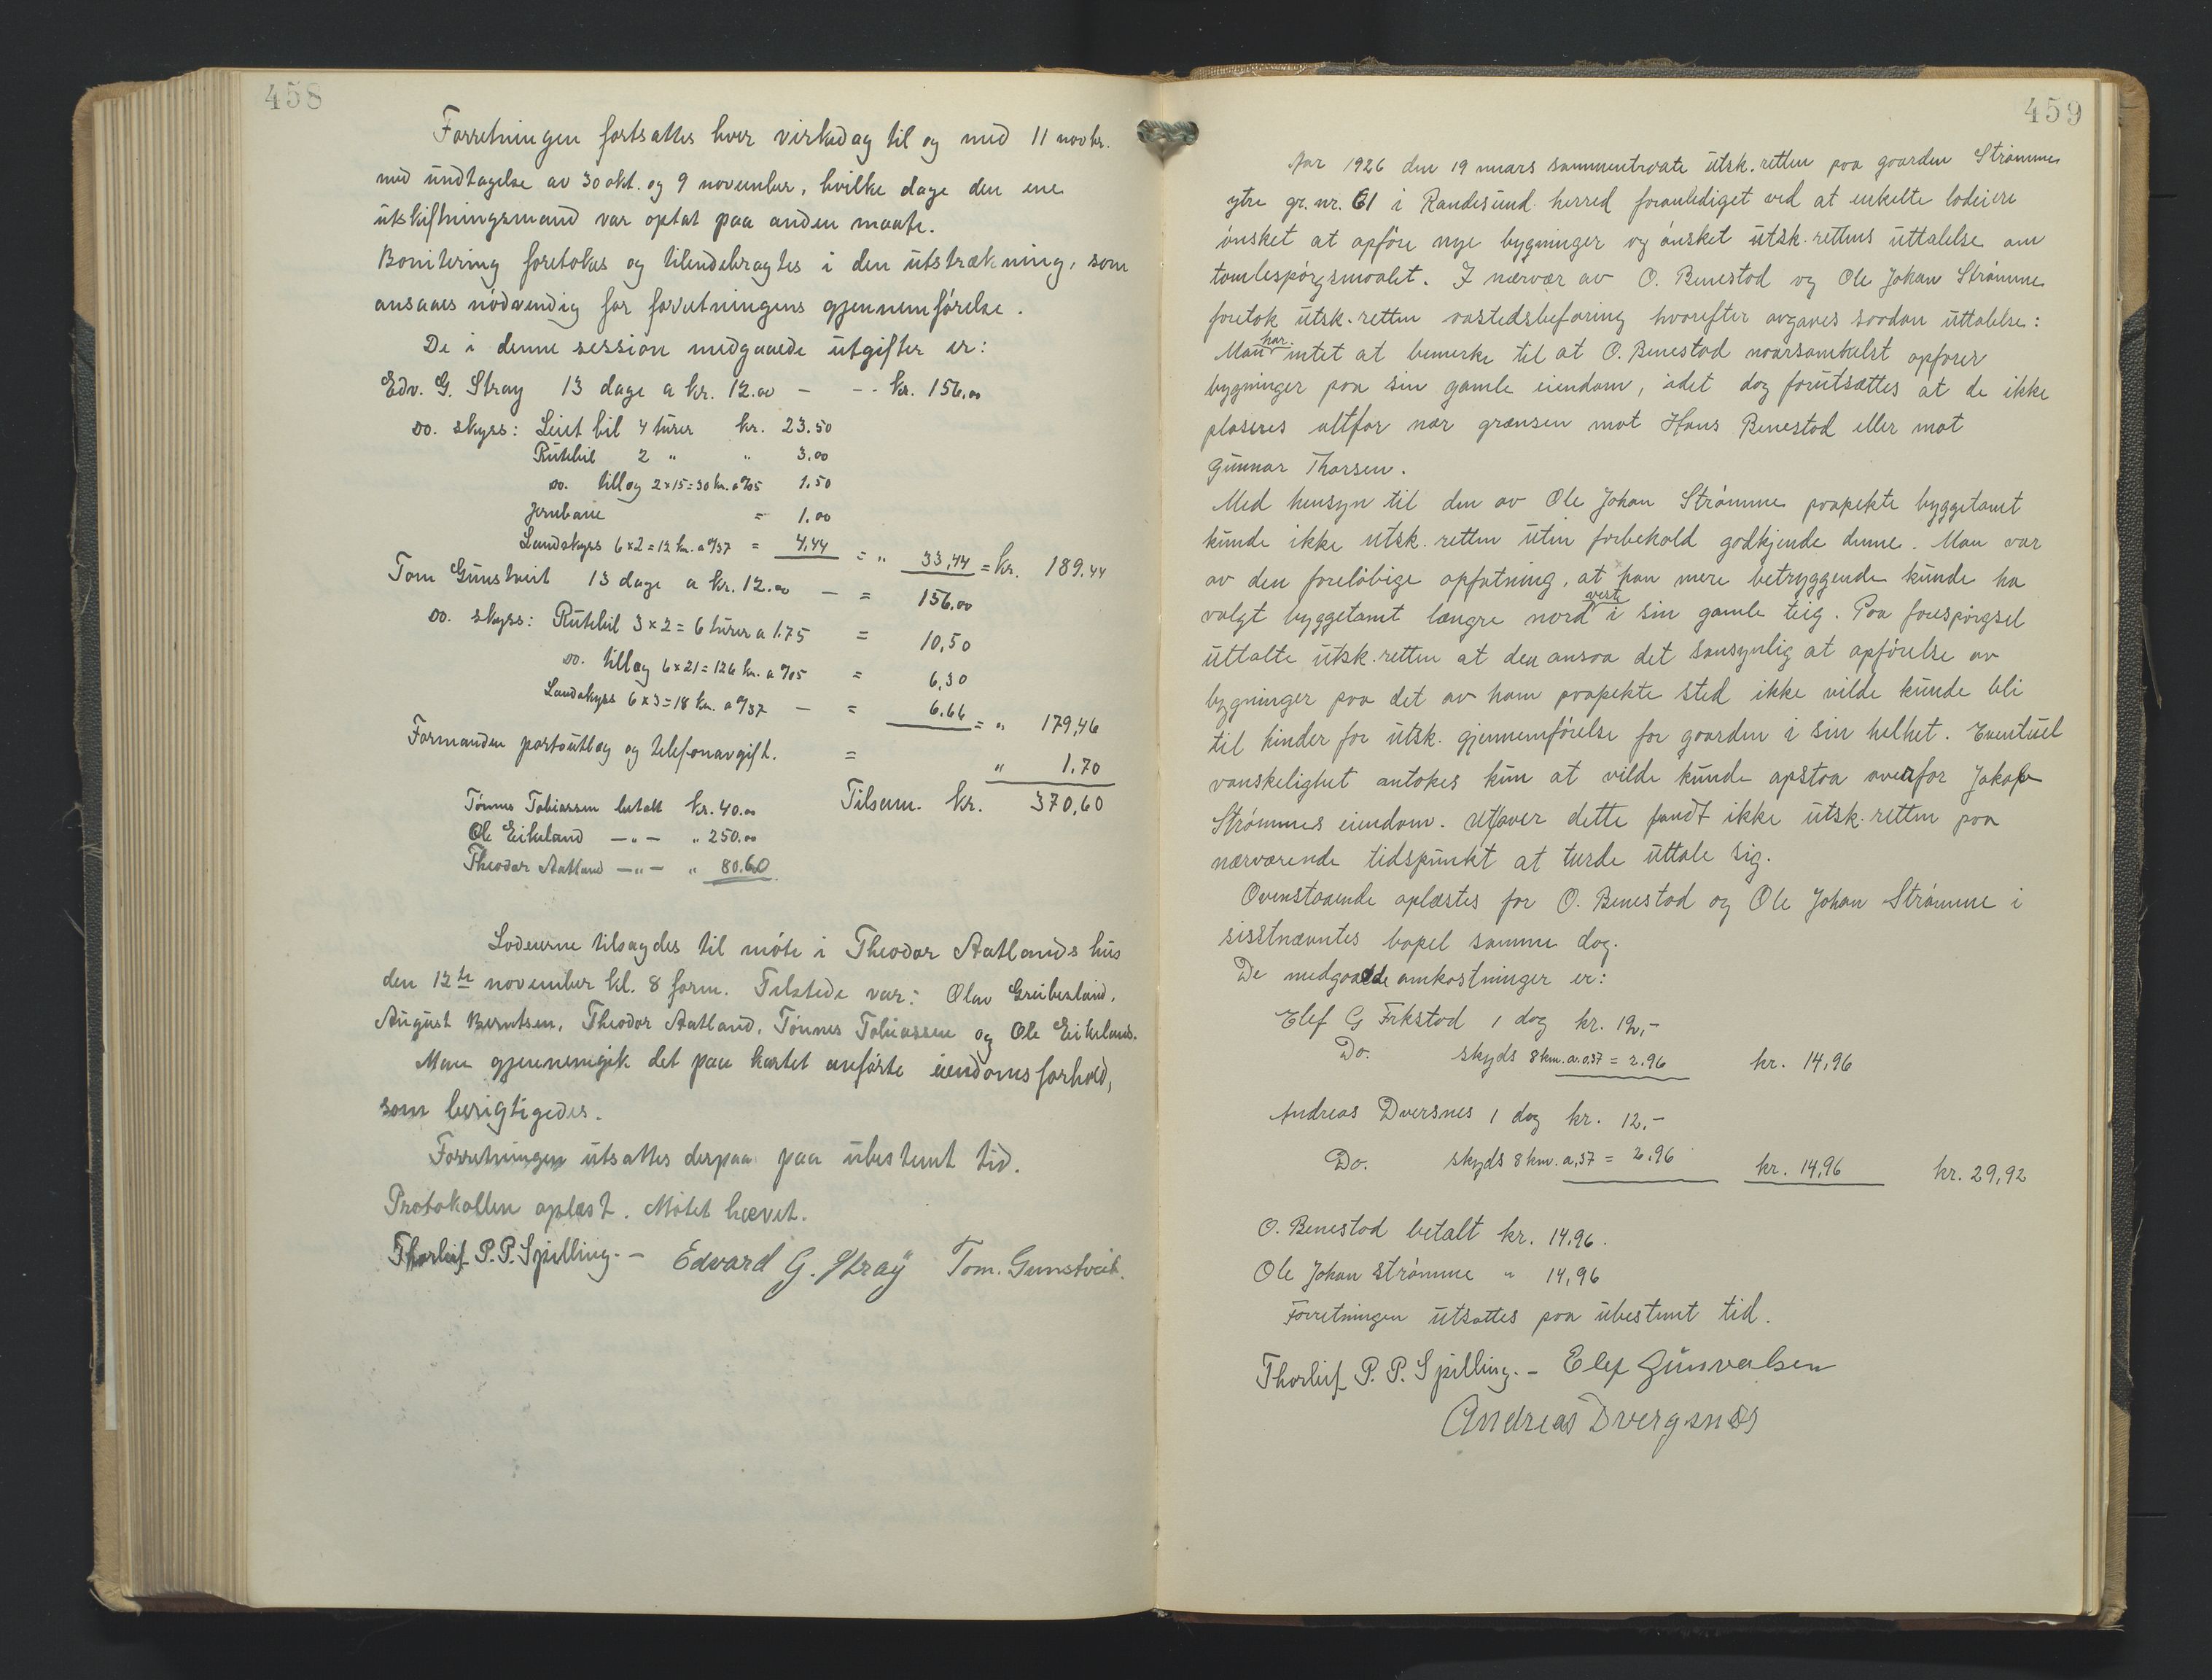 458
Forretningen fortsattes hver virkedag til og med 11 novbr.
med undtagelse av 30 okt. og 9 november, hvilke dage den ene
utskiftningsmand var optat paa anden maate.
Bonitering foretokes og tilendebragtes i den utstrækning, som
ansaaes nödvendig for forretningens gjennemförelse.
De i denne session medgaaede utgifter er:
Edv. G. Stray 13 dage a kr. 12.00 — -- kr. 156,00
Do. skyss: Leiet bil 4 turer kr. 23.50
Rutebil 2 " " 3.00
Do. tillæg 2x15=30 km. a 0/05 1.50
Jernbane = 1.00
Landskyss 6x2=12 km. a 0/37 = 4.44 = " 33,44 = kr. 189.44
Tom Gunstveit 13 dage a kr. 12.00 — = 156.00
Do. skyss: Rutebil 3x2=6 turer a 1.75 = 10,50
Do. tillæg 6x21=126 km. a 0/05 = 6,30
Landskyss 6x3=18 km. a 0/37 — = 6.66 = " 179,46
Formanden portoutlæg og telefonavgift. = " 1.70
Tilsam. kr. 370,60
Tönnes Tobiassen betalt kr. 40.00
Ole Eikeland —"— " 250.00
Theodor Aatland —"— " 80.60
Lodeierne tilsagdes til möte i Theodor Aatlands hus
den 12te november kl. 8 form. Tilstede var: Olav Greibesland,
August Berntsen, Theodor Aatland, Tönnes Tobiassen og Ole Eikeland.
Man gjennemgik det paa kartet anförte eiendomsforhold,
som berigtigedes.
Forretningen utsattes derpaa paa ubestemt tid.
Protokollen oplæst. Mötet hævet.
Thorleif P. P. Spilling. – Edvard G. Stray Tom. Gunstveit.
459
Aar 1926 den 19 mars sammentraate utsk. retten paa gaarden Strömme
ytre gr. nr. 61 i Randesund herred foranlediget ved at enkelte lodeiere
önsket at opföre nye bygninger og önsket utsk. rettens uttalelse om
tomtespörgsmaalet. I nærvær av O. Benestad og Ole Johan Strömme
foretok utsk. retten aastedsbefaring hvorefter avgaves saadan uttalelse:
Man har intet at bemerke til at O. Benestad naarsomhelst opförer
bygninger paa sin gamle eiendom, idet dog forutsættes at de ikke
plaseres altfor nær grænsen mot Hans Benestad eller mot
Gunnar Thorsen.
Med hensyn til den av Ole Johan Strömme paapekte byggetomt
kunde ikke utsk. retten uten forbehold godkjende denne. Man var
av den forelöbige opfatning, at han mere betryggende kunde ha
valgt byggetomt længre nord vest i sin gamle teig. Paa forespörgsel
uttalte utsk. retten at den ansaa det sansynlig at opförelse av
bygninger paa det av ham paapekte sted ikke vilde kunde bli
til hinder for utsk. gjennemförelse for gaarden i sin helhet. Eventuel
vanskelighet antokes kun at vilde kunde opstaa overfor Jakob
Strömmes eiendom. Utover dette fandt ikke utsk. retten paa
nærværende tidspunkt at turde uttale sig.
Ovenstaaende oplæstes for O. Benestad og Ole Johan Strömme i
sisstnævntes bopel samme dag.
De medgaaede omkostninger er:
Elef G Frkstad 1 dag kr. 12,-
Do. skyds 8 km. a. 0.37 = 2.96 kr. 14,96
Andreas Dversnes 1 dag kr. 12,-
Do. skyds 8 km. a ,37 = 2.96 kr. 14,96 kr. 29,92
O. Benestad betalt kr. 14,96.
Ole Johan Strömme " 14,96
Forretningen utsattes paa ubestemt tid.
Thorleif P. P. Spilling. – Elef Gunvalsen
Andreas Dvergsnes